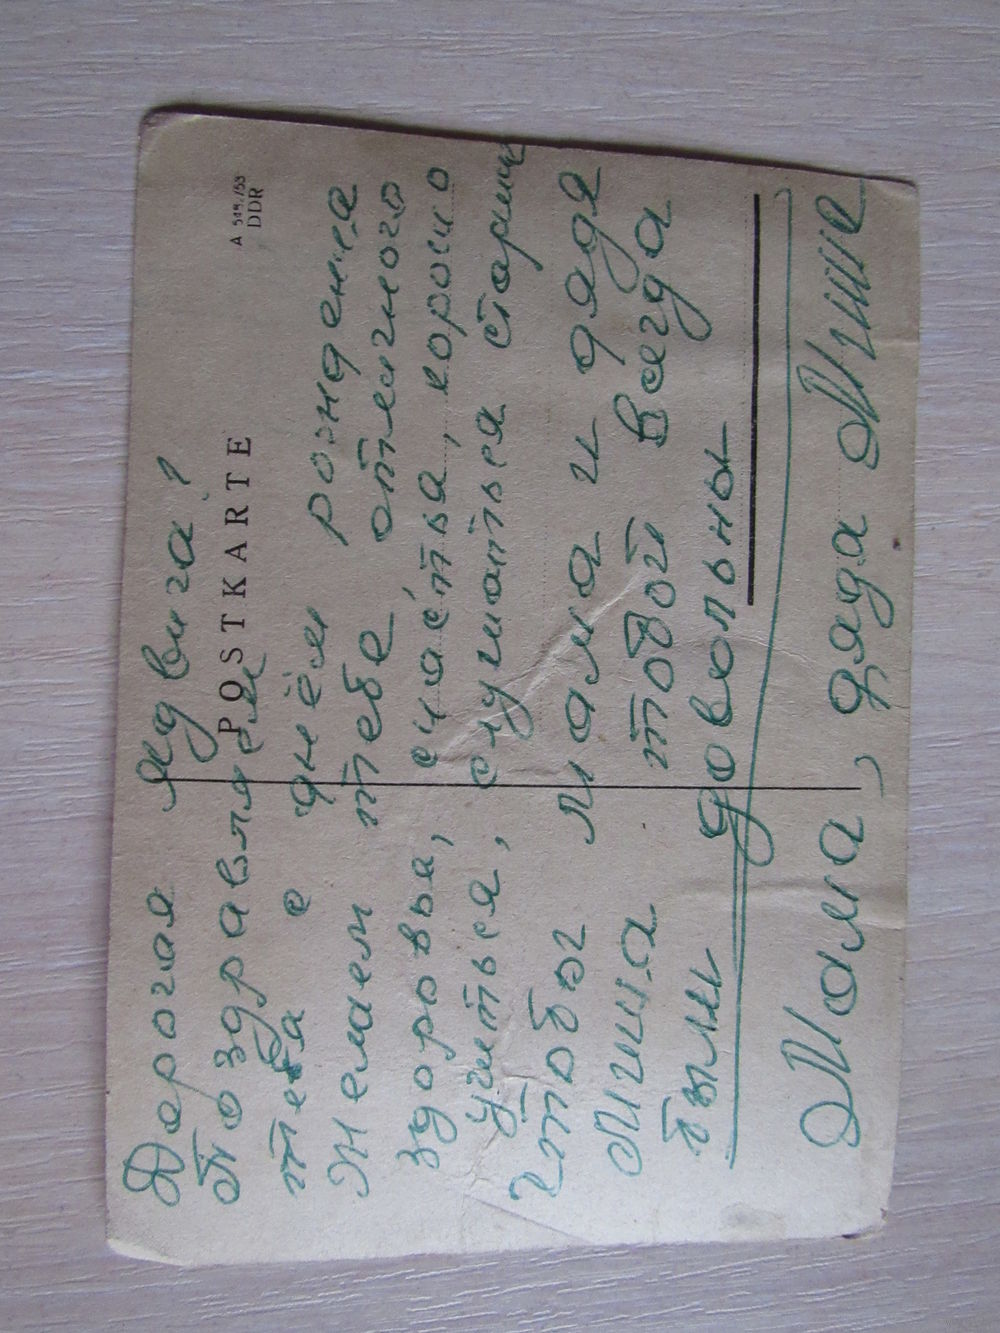 Дорогая Ядвига!
POSTKARTE
A 519./53
DDR
Поздравляем
тебя с днём рождения
Желаем тебе отличного
здоровья, счастья, хорошо
учиться, слушаться старших
чтобы мама и дядя
Миша тобой всегда
были довольны
Мама, дядя Миша